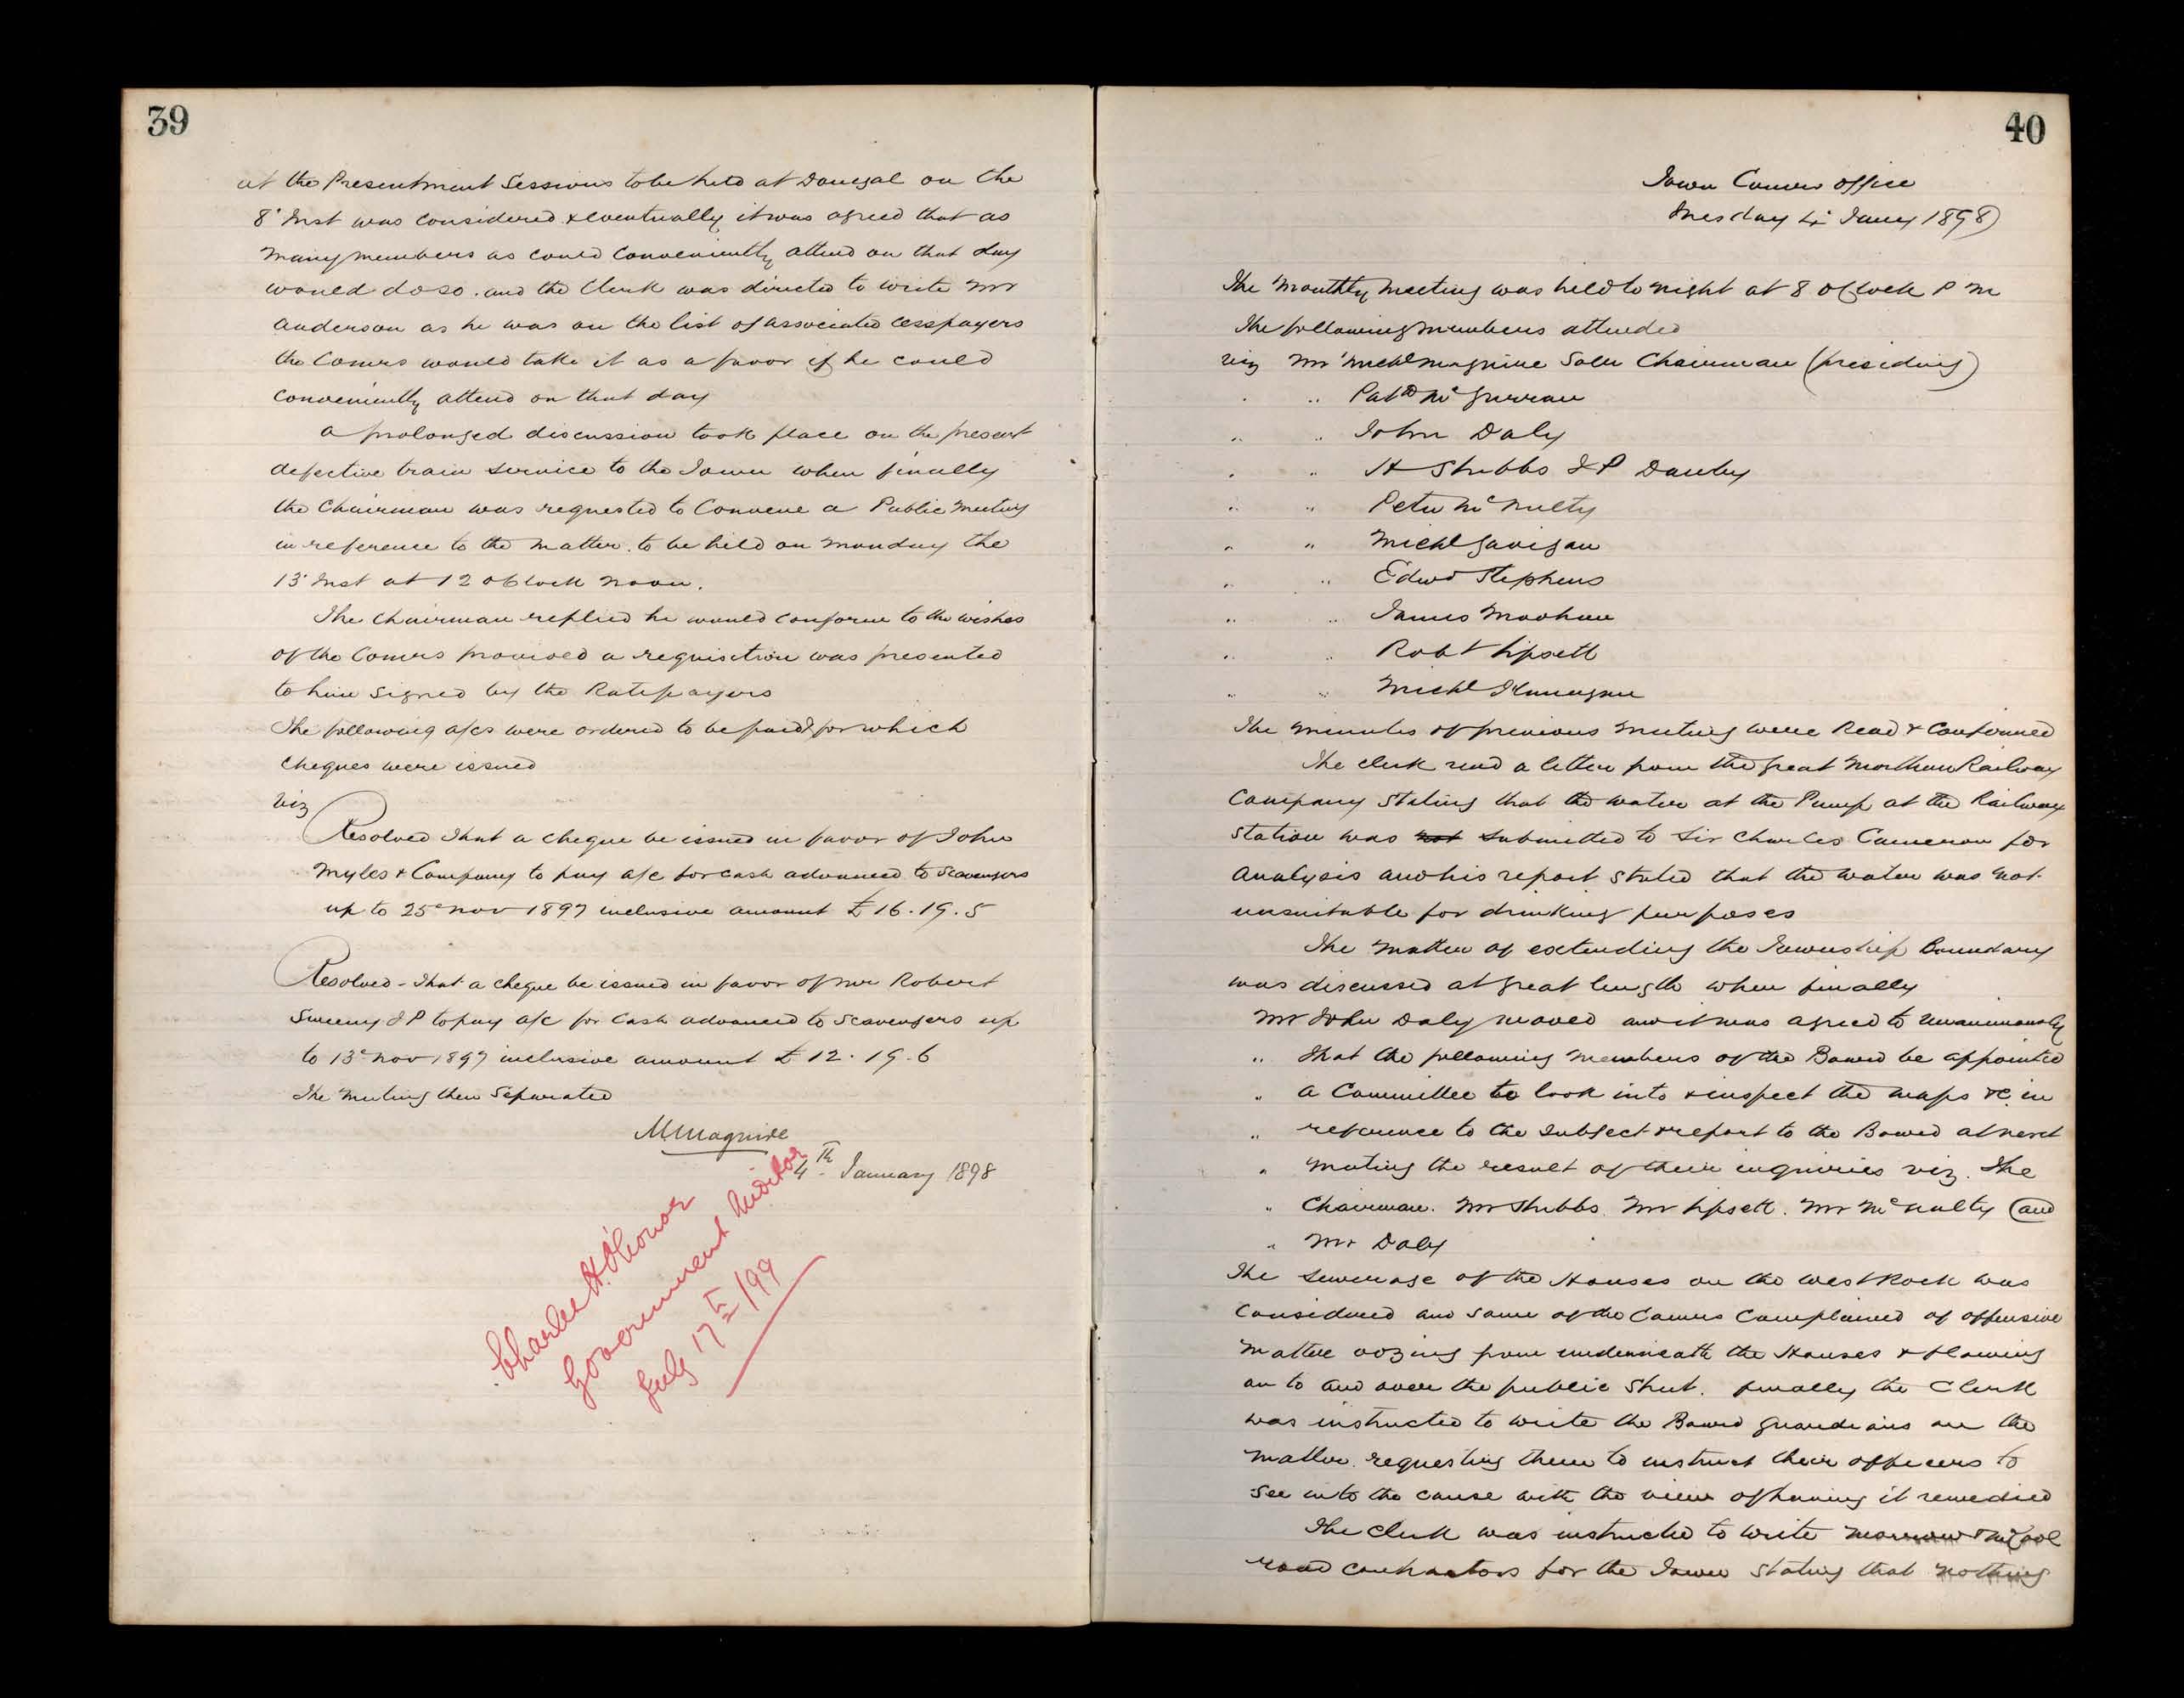 39
at the Presentment Sessions to be held at Donegal on the
8th Inst was considered & eventually it was agreed that as
many members as could conveniently attend on that day
would do so. and the Clerk was directed to write Mr
Anderson as he was on the list of associated cesspayers
the Comrs would take it as a favor if he could
conveniently attend on that day
A prolonged discussion took place on the present
defective train service to the Town when finally
the Chairman was requested to Convene a Public Meeting
in reference to the matter. to be held on Monday the
13th Inst at 12 oClock noon.
The Chairman replied he would conform to the wishes
of the Comrs provided a requisition was presented
to him signed by the Ratepayers
The following a/cs were ordered to be paid & for which
cheques were issued
viz
Resolved That a cheque be issued in favor of John
Myles & Company to pay a/c for cash advanced to Scavengers
up to 25th Nov 1897 inclusive amount £16.19.5
Resolved - That a cheque be issued in favor of Mr Robert
Sweeny J P to pay a/c for Cash advanced to Scavengers up
to 13th Nov 1897 inclusive amount £12.19.6
The Meeting then Separated
M Maguire
4th January 1898
Charles H. O'Conor
Government Auditor
July 17th/99
40
Town Comrs office
Tuesday 4th Jany 1898
The Monthly Meeting was held to night at 8 oClock P M
The following members attended
viz Mr Michl Maguire Solr Chairman (presiding)
" " Patk McGurran
" " John Daly
" " H Stubbs J P Danby
" " Peter McNulty
" " Michl Gavigan
" " Edwd Stephens
" " James Moohan
" " Robt Lipsett
" " Michl Flanagan
The minutes of previous meeting were Read & Confirmed
The clerk read a letter from the Great Northern Railway
Company Stating that the water at the Pump at the Railway
Station was not submitted to Sir Charles Cameron for
Analysis and his report stated that the water was not
unsuitable for drinking purposes
The matter of extending the Township Boundary
was discussed at great length when finally
Mr John Daly moved and it was agreed to unanimously
" That the following members of the Board be appointed
" a Committee to look into & inspect the maps &c in
" reference to the subject & report to the Board at next
" meeting the result of their inquiries viz. The
" Chairman. Mr Stubbs. Mr Lipsett. Mr McNulty and
" Mr Daly
The sewerage of the Houses on the West Rock was
considered and some of the Comrs Complained of offensive
matter oozing from underneath the Houses & flowing
on to and over the public Street. finally the Clerk
was instructed to write the Board Guardians on the
matter requesting them to instruct their officers to
see into the cause with the view of having it remedied
The clerk was instructed to write Morrow & McCool
road contractors for the Town stating that nothing